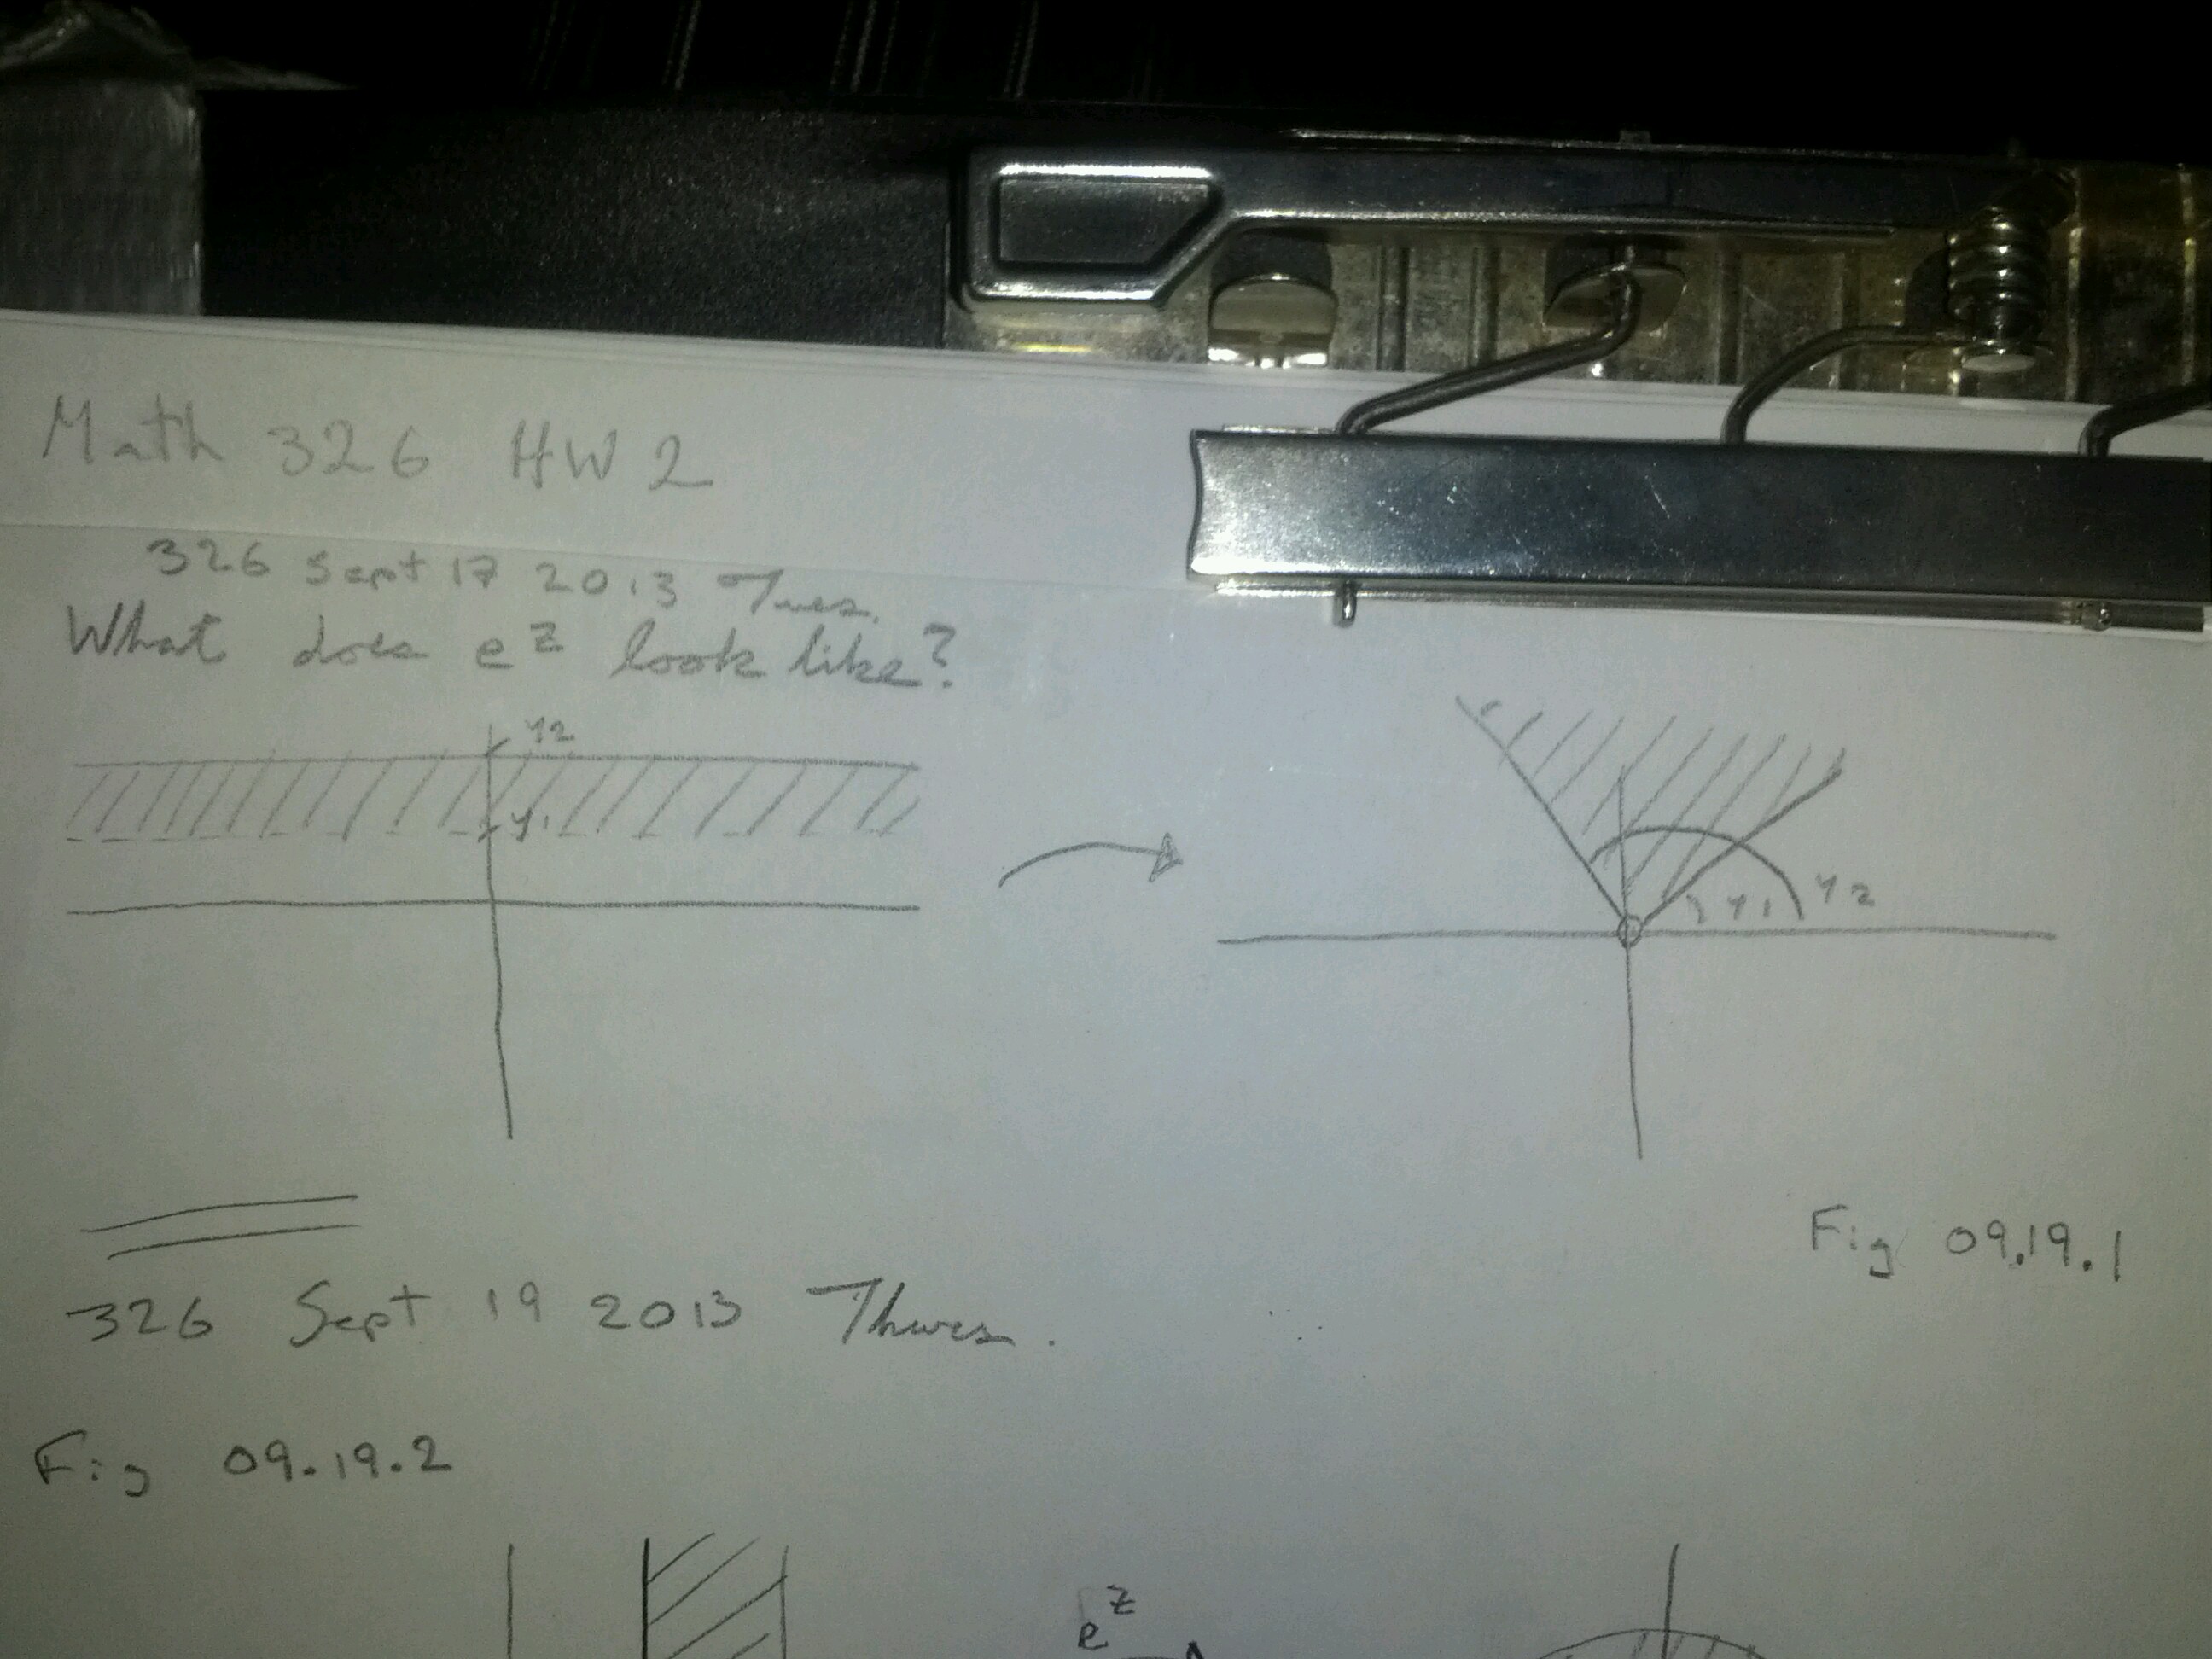 Math 326 HW 2
326 Sept 17 2013 Tues.
What does e^z look like?
y2
y1
y1 y2
Fig 09.19.1
326 Sept 19 2013 Thurs.
Fig 09.19.2
e^z